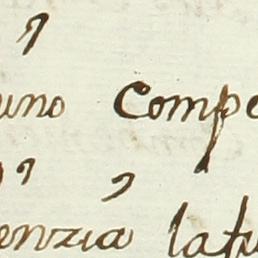 uno compe
enzia la